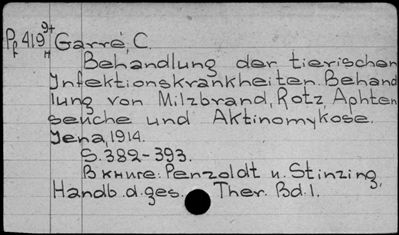 Pf 419 9+ Garré, C.
н
Behandlung der tierischen
Infektionskrankheiten. Behand
lung von Milzbrand, Rotz, Aphten
seuche und Aktinomykose.
Jena, 1914.
S. 382-393.
В книге: Penzoldt u. Stinzing,
Handb. d. ges. Ther. Bd. 1.